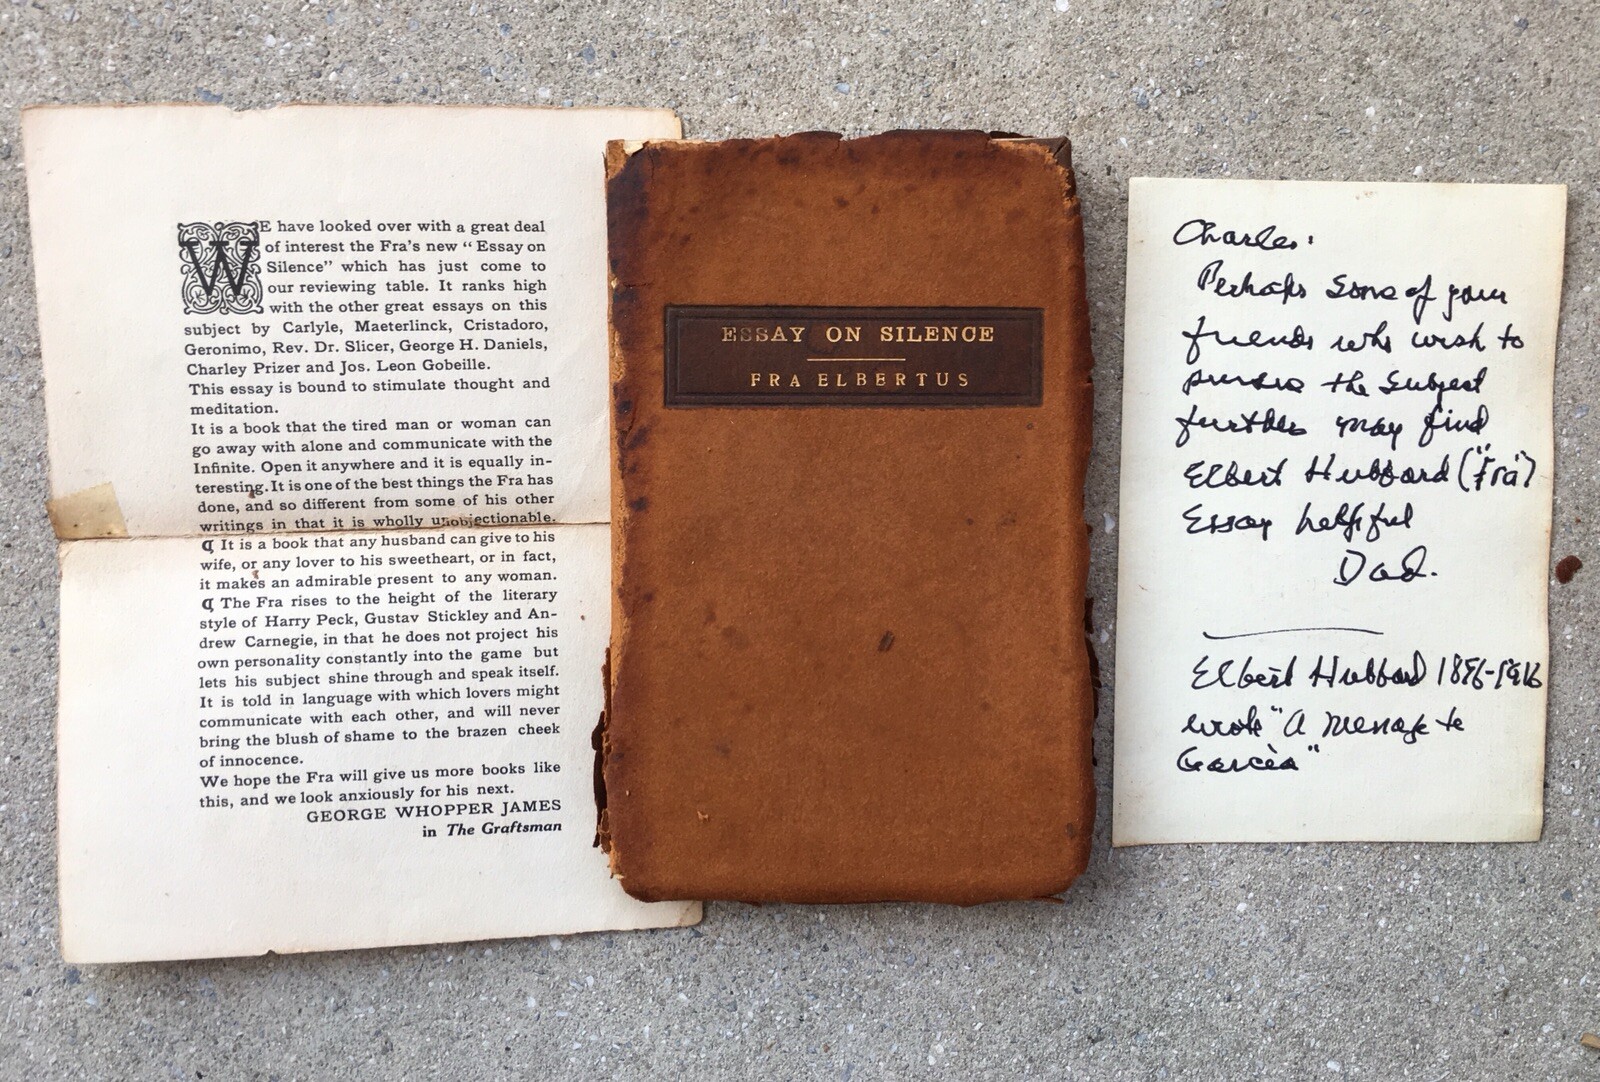 WE have looked over with a great deal
of interest the Fra's new “ Essay on
Silence” which has just come to
our reviewing table. It ranks high
with the other great essays on this
subject by Carlyle, Maeterlinck, Cristadoro,
Geronimo, Rev. Dr. Slicer, George H. Daniels,
Charley Prizer and Jos. Leon Gobeille.
This essay is bound to stimulate thought and
meditation.
It is a book that the tired man or woman can
go away with alone and communicate with the
Infinite. Open it anywhere and it is equally in-
teresting. It is one of the best things the Fra has
done, and so different from some of his other
writings in that it is wholly unobjectionable.
¶ It is a book that any husband can give to his
wife, or any lover to his sweetheart, or in fact,
it makes an admirable present to any woman.
¶ The Fra rises to the height of the literary
style of Harry Peck, Gustav Stickley and An-
drew Carnegie, in that he does not project his
own personality constantly into the game but
lets his subject shine through and speak itself.
It is told in language with which lovers might
communicate with each other, and will never
bring the blush of shame to the brazen cheek
of innocence.
We hope the Fra will give us more books like
this, and we look anxiously for his next.
GEORGE WHOPPER JAMES
in The Graftsman
ESSAY ON SILENCE
FRA ELBERTUS
Charles:
Perhaps some of your
friends who wish to
pursue the subject
further may find
Elbert Hubbard ("Fra")
Essay helpful
Dad.
Elbert Hubbard
wrote "A Message to
Garcia"